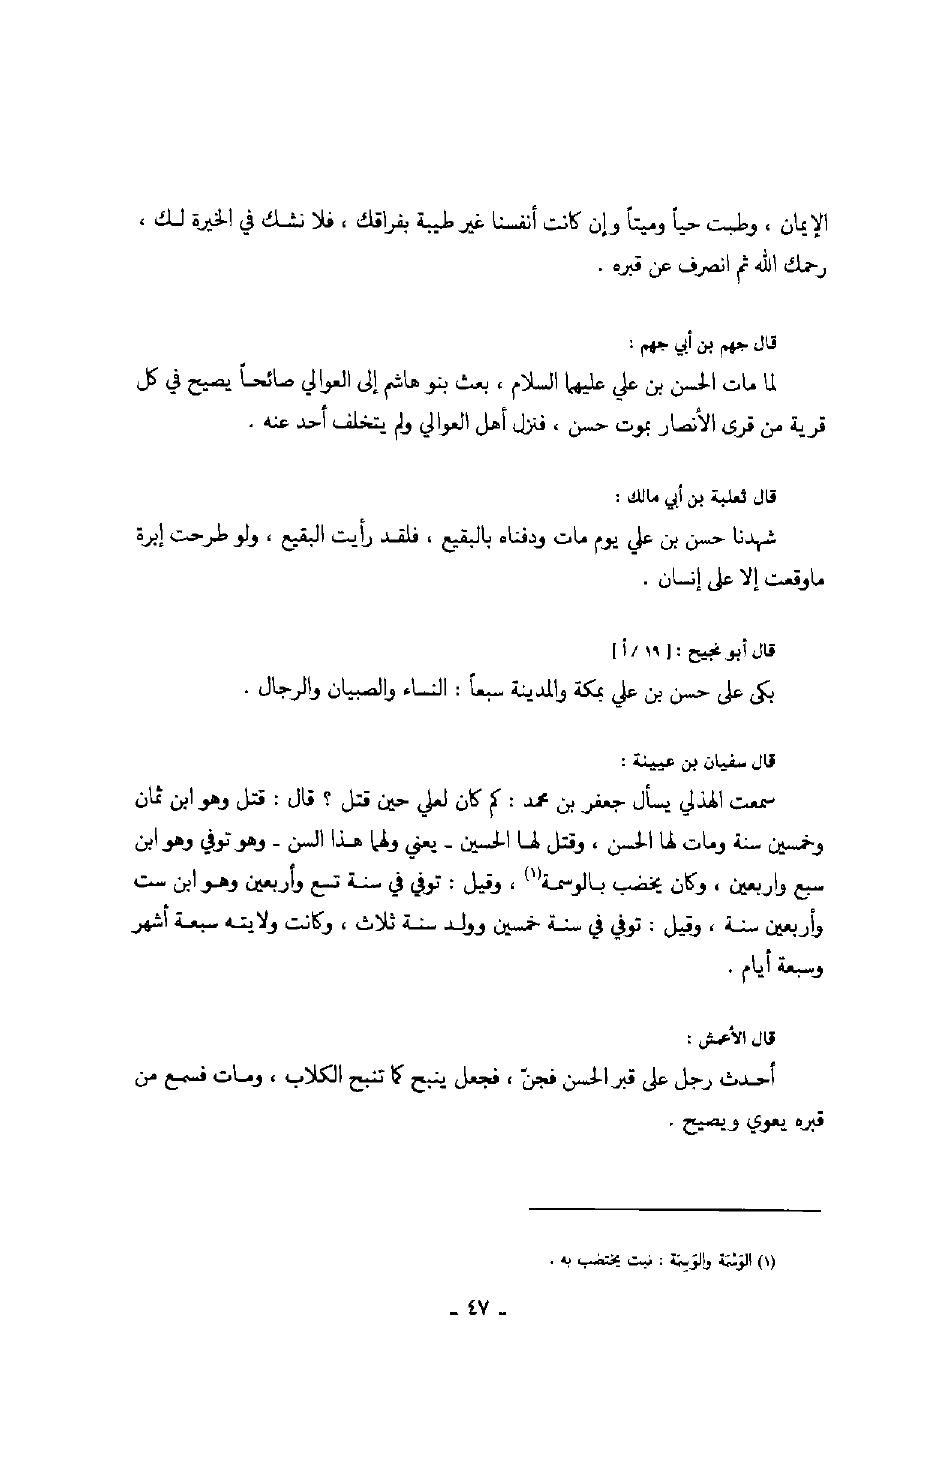 الإيمان ، وطبت حياً وميتاً وإن كانت أنفسنا غير طيبة بفراقك ، فلا نشك في الخيرة لك ،
رحمك الله ثم انصرف عن قبره .
قال جهم بن أبي جهم :
لما مات الحسن بن علي عليهما السلام ، بعث بنو هاشم إلى العوالي صائحاً يصيح في كل
قرية من قرى الأنصار بموت حسن ، فنزل أهل العوالي ولم يتخلف أحد عنه .
قال ثعلبة بن أبي مالك :
شهدنا حسن بن علي يوم مات ودفناه بالبقيع ، فلقد رأيت البقيع ، ولو طرحت إبرة
ماوقعت إلا على إنسان .
قال أبو نجيح : [ ١٩ / أ ]
بكي على حسن بن علي بمكة والمدينة سبعاً : النساء والصبيان والرجال .
قال سفيان بن عيينة :
سمعت الهذلي يسأل جعفر بن محمد : كم كان لعلي حين قتل ؟ قال : قتل وهو ابن ثمان
وخمسين سنة ومات لها الحسن ، وقتل لها الحسين - يعني ولهما هذا السن - وهو توفي وهو ابن
سبع واربعين ، وكان يخضب بالوسمة(١) ، وقيل : توفي في سنة تسع وأربعين وهو ابن ست
وأربعين سنة ، وقيل : توفي في سنة خمسين وولد سنة ثلاث ، وكانت ولايته سبعة أشهر
وسبعة أيام .
قال الأعمش :
أحدث رجل على قبر الحسن فجنّ ، فجعل ينبح كما تنبح الكلاب ، ومات فسمع من
قبره يعوي ويصيح .
(١) الوَسْمَة والوَسِمَة : نبت يختضب به .
- ٤٧ -